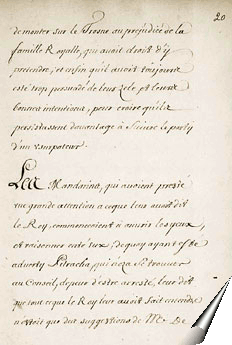 20
de monter sur le Trosne au prejudice de la
famille Royalle, qui avoit droit d'y
pretendre, et enfin qu'il avoit toujours
esté trop persuadé de leur zele et leurs
bonnes intentions, pour croire qu'ils
persistassent davantage à suivre le party
d'un usurpateur.
Les Mandarins, qui avoient presté
une grande attention a ceque leur avoit dit
le Roy, commencoient à ouvrir les yeux,
et raisonner entr'eux, dequoy ayant esté
adverty Pitracha, qui n'oza se trouver
au Conseil, depeur d'estre arresté, leur dit
que tout ceque le Roy leur avoit fait entendre
n'estoit que des suggestions de Mr. De